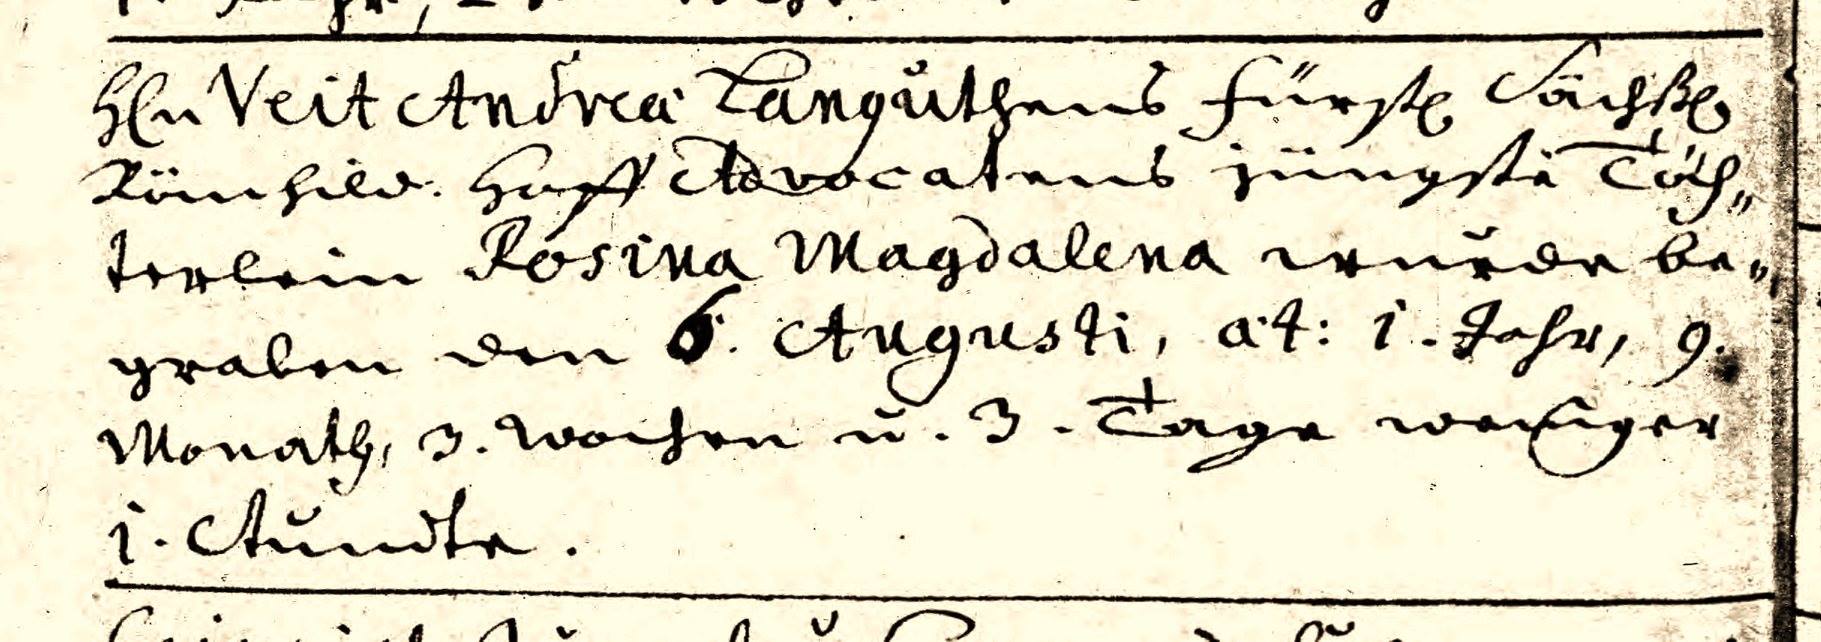 Hln Veit Andreä Languthens Fürstl. Sächßl.
Römhild. Hoff Advocatens jüngste Töch„
terlein Rosina Magdalena wurde be„
graben den 6. Augusti, æt: 1. Jahr, 9.
Monath, 3. Wochen u. 3. Tage weniger
1. Stundte.